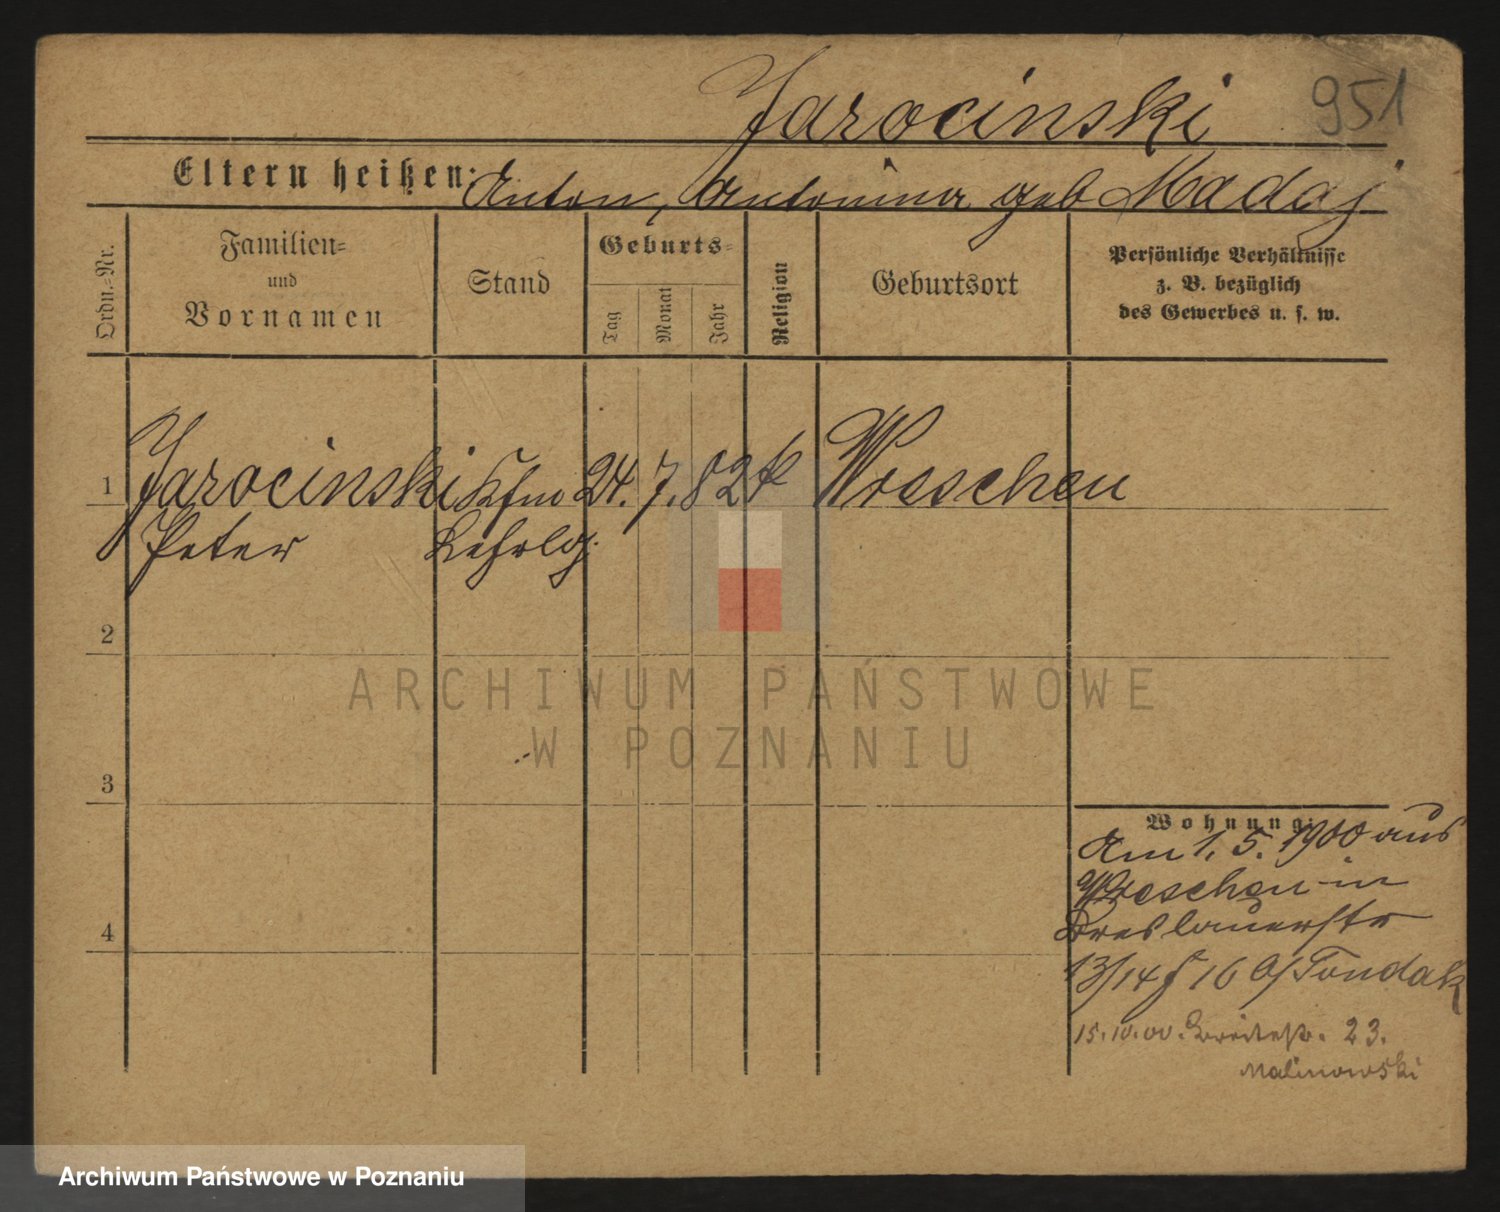 Jarocinski
951
Eltern heißen: Anton, Antonina geb Madaj
Ordn.=Nr.
Familien=
und
Vornamen
Stand
Geburts=
Tag
Monat
Jahr
Religion
Geburtsort
Persönliche Verhältnisse
z. B. bezüglich
des Gewerbes u. s. w.
1 Jarocinski Kfm 24. 7. 82 k Wreschen
Peter Lehrlg.
2
ARCHIWUM PAŃSTWOWE
W POZNANIU
3
Wohnung:
Am 1. 5. 1900 aus
Wreschen in
4
Breslauerstr
13/14 16 Tondak
15.10.00. Breitestr. 23.
Malinowski
Archiwum Państwowe w Poznaniu